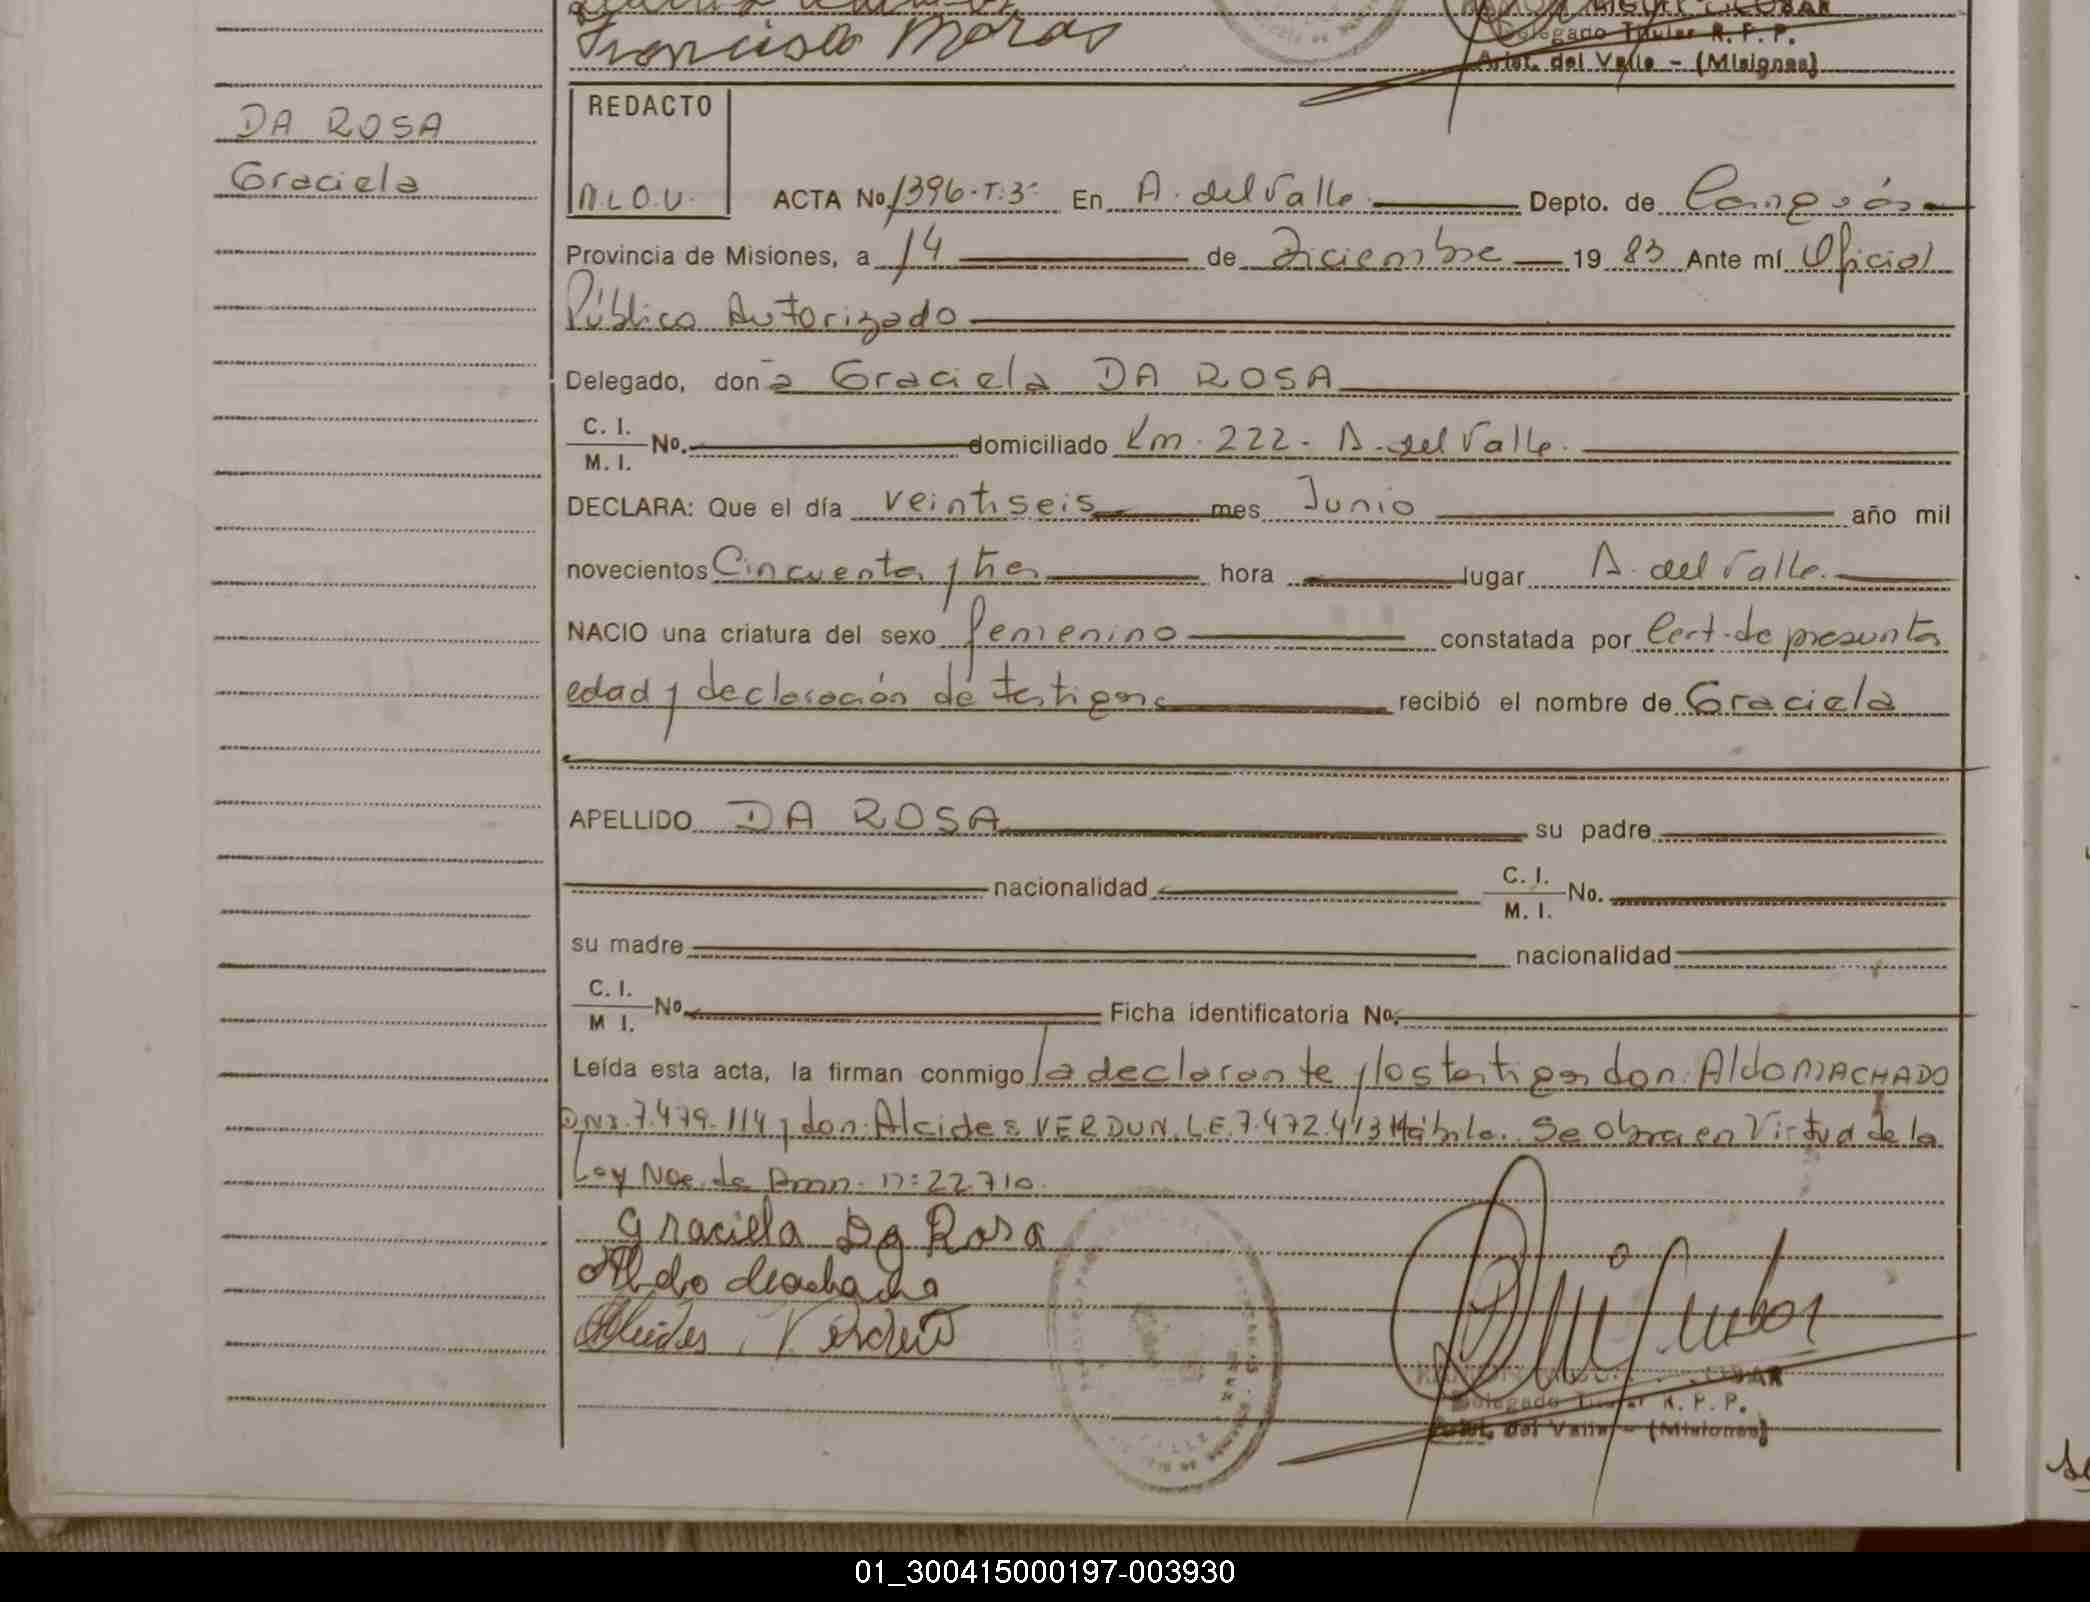 Francisco Moras
Delegado Titular R. P. P.
Arist. del Valle - (Misiones)
DA ROSA
Graciela
REDACTO
ACTA No. 1396-T.3º En A. del Valle Depto. de
Provincia de Misiones, a 14 de Diciembre 19 83 Ante mí Oficial
Público Autorizado
Delegado, don a Graciela DA ROSA
C. I.
M. I.
No. domiciliado Km. 222 - A. del Valle.
DECLARA: Que el día veintiseis mes Junio año mil
novecientos Cincuenta y tres hora lugar A. del Valle.
NACIO una criatura del sexo femenino constatada por Cert. de presunta
edad y declaración de testigos recibió el nombre de Graciela
APELLIDO DA ROSA su padre
nacionalidad C. I.
M. I. No.
su madre nacionalidad
C. I.
M I. No. Ficha identificatoria No.
Leída esta acta, la firman conmigo la declarante y los testigos don: Aldo MACHADO
DNI. 7.479.114 y don: Alcides VERDUN, L.E. 7.472.413 Hábiles. Se obra en Virtud de la
Ley Nac. de Amn. nº: 22.710.
Graciela Da Rosa
Aldo Machado
Alcides Verdun
Delegado Titular R. P. P.
Arist. del Valle - (Misiones)
01_300415000197-003930